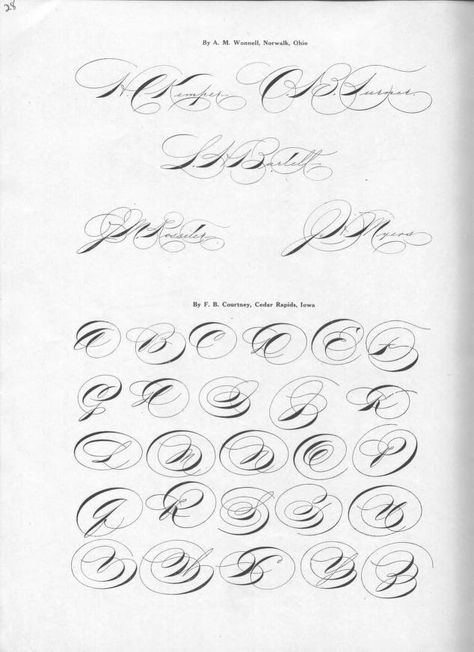 28
By A. M. Wonnell, Norwalk, Ohio
H C Kemper C. B. Turner
L. H Bartlett
J M Rosseter J K Myers
By F. B. Courtney, Cedar Rapids, Iowa
A B C D E F
G H I J K
L M N O P
Q R S T U
V W X Y Z